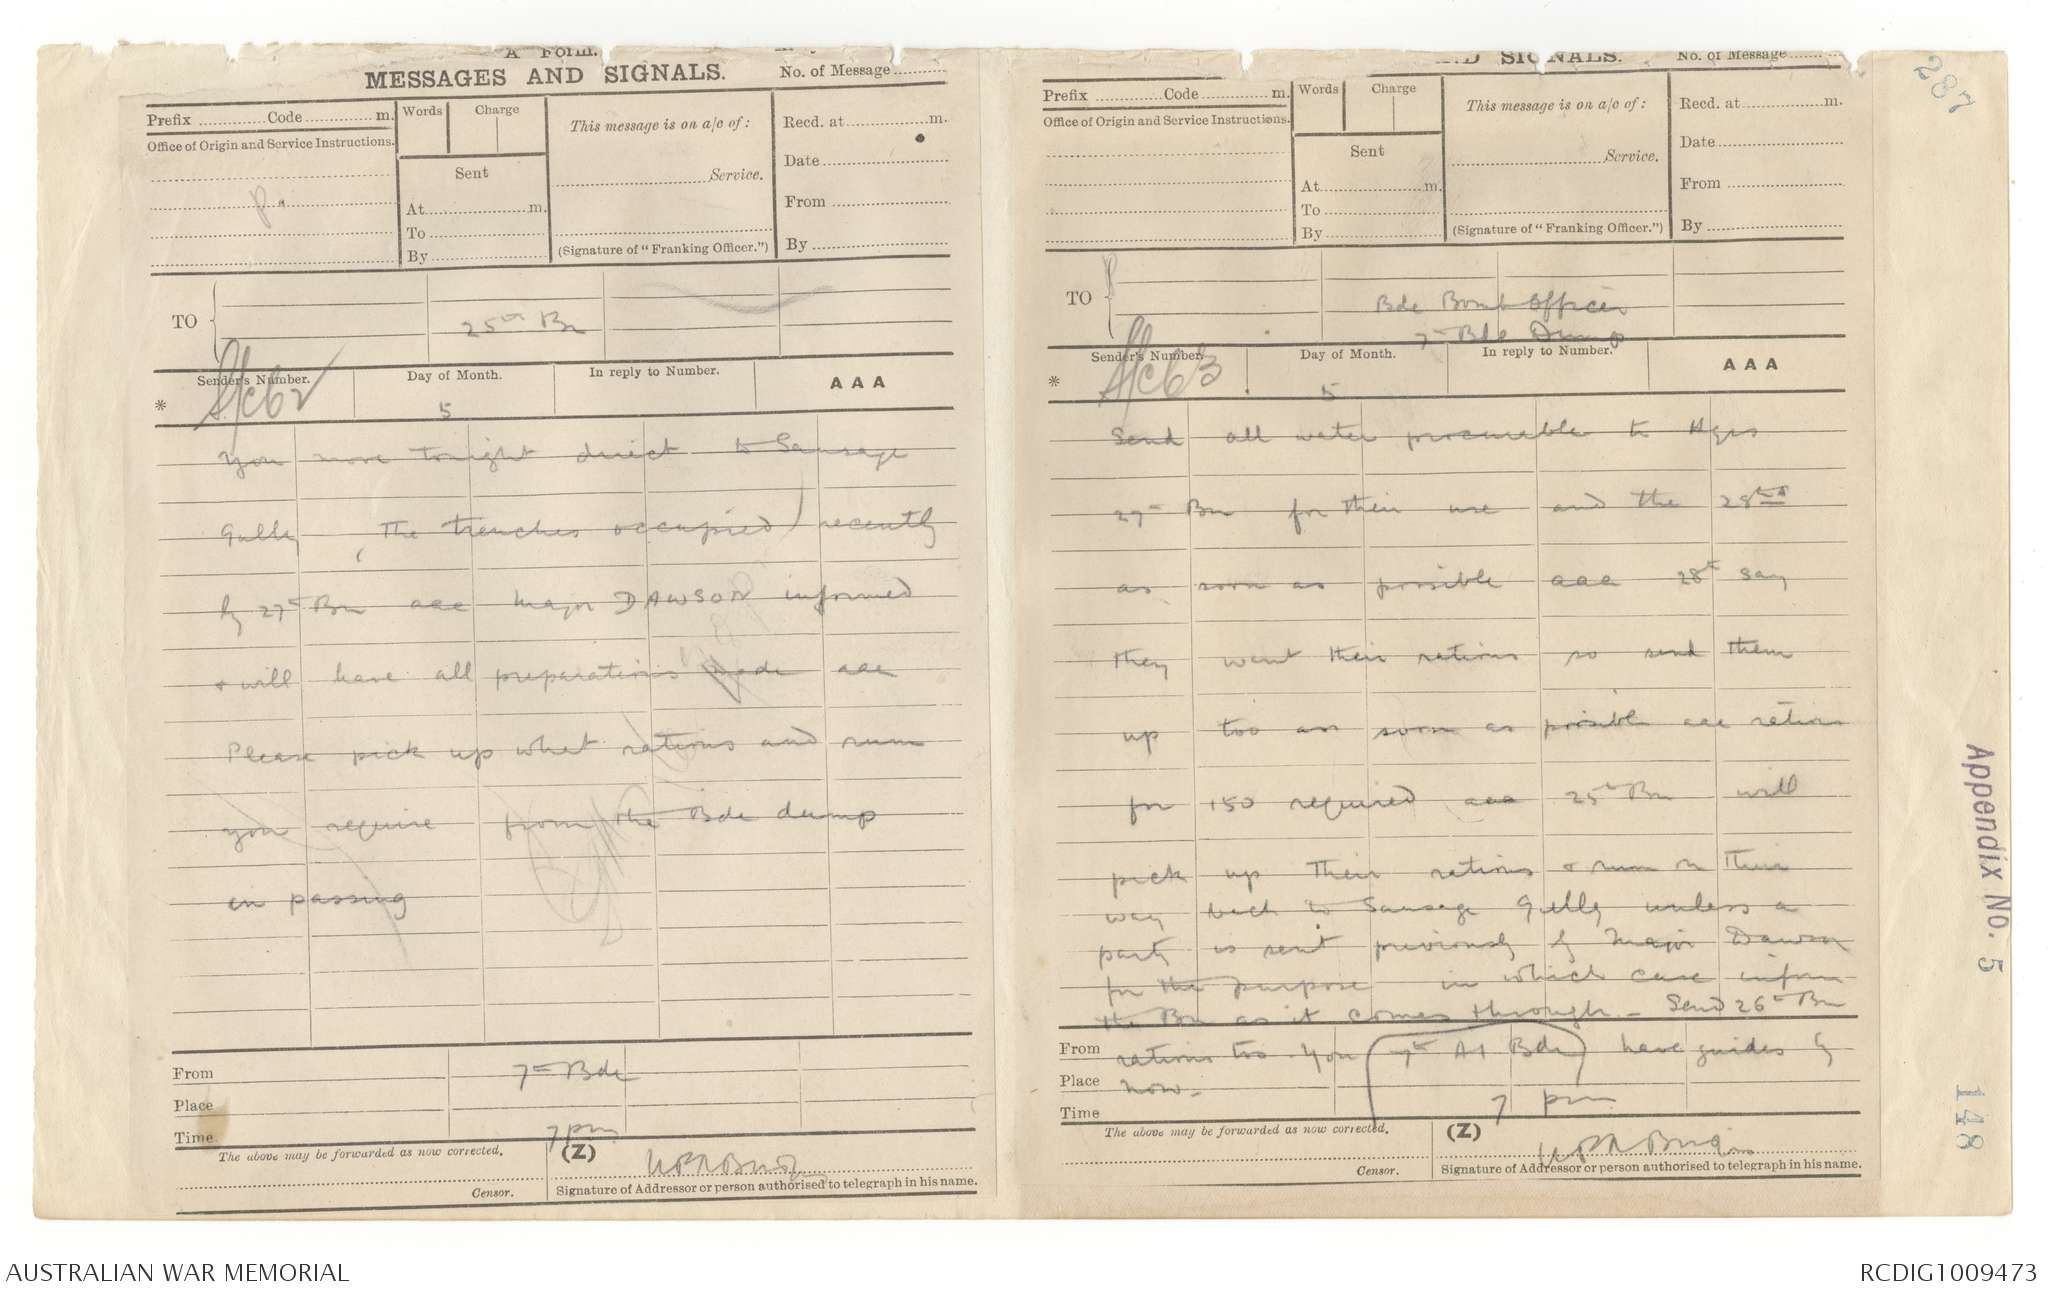 "A" Form.
MESSAGES AND SIGNALS.
No. of Message
Prefix Code m.
Words Charge
This message is on a/c of:
Recd. at m.
Office of Origin and Service Instructions.
Sent
Service.
Date
At m.
From
To
By
(Signature of "Franking Officer.")
By
TO
25th Bn
Sender's Number.
Day of Month.
In reply to Number.
AAA
5
You move tonight direct to Sausage
Gully (the trenches occupied) recently
by 27th Bn aaa Major DAWSON informed
& will have all preparations made aaa
Please pick up what rations and rum
you require from the Bde dump
in passing
From
7th Bde
Place
Time
7 pm
The above may be forwarded as now corrected.
(Z)
Censor.
Signature of Addressor or person authorised to telegraph in his name.
AND SIGNALS.
No. of Message
Prefix Code m.
Words Charge
This message is on a/c of:
Recd. at m.
Office of Origin and Service Instructions.
Sent
Service.
Date
At m.
From
To
By
(Signature of "Franking Officer.")
By
TO
Bde Bomb Officer
7th Bde Dump
Sender's Number.
Day of Month.
In reply to Number.
AAA
5
Send all water procurable to Hqrs
27th Bn for their use and the 28th
as soon as possible aaa 28th say
they want their rations so send them
up too as soon as possible aaa rations
for 150 required aaa 25th Bn will
pick up their rations & rum on their
way back to Sausage Gully unless a
party is sent previously by Major Dawson
for the purpose in which case inform
the Bn as it comes through - Send 26th Bn
From
rations too. You (7th A I Bde) have guides by
Place
now.
Time
7 pm
The above may be forwarded as now corrected.
(Z)
Censor.
Signature of Addressor or person authorised to telegraph in his name.
287
Appendix No. 5
148
AUSTRALIAN WAR MEMORIAL
RCDIG1009473